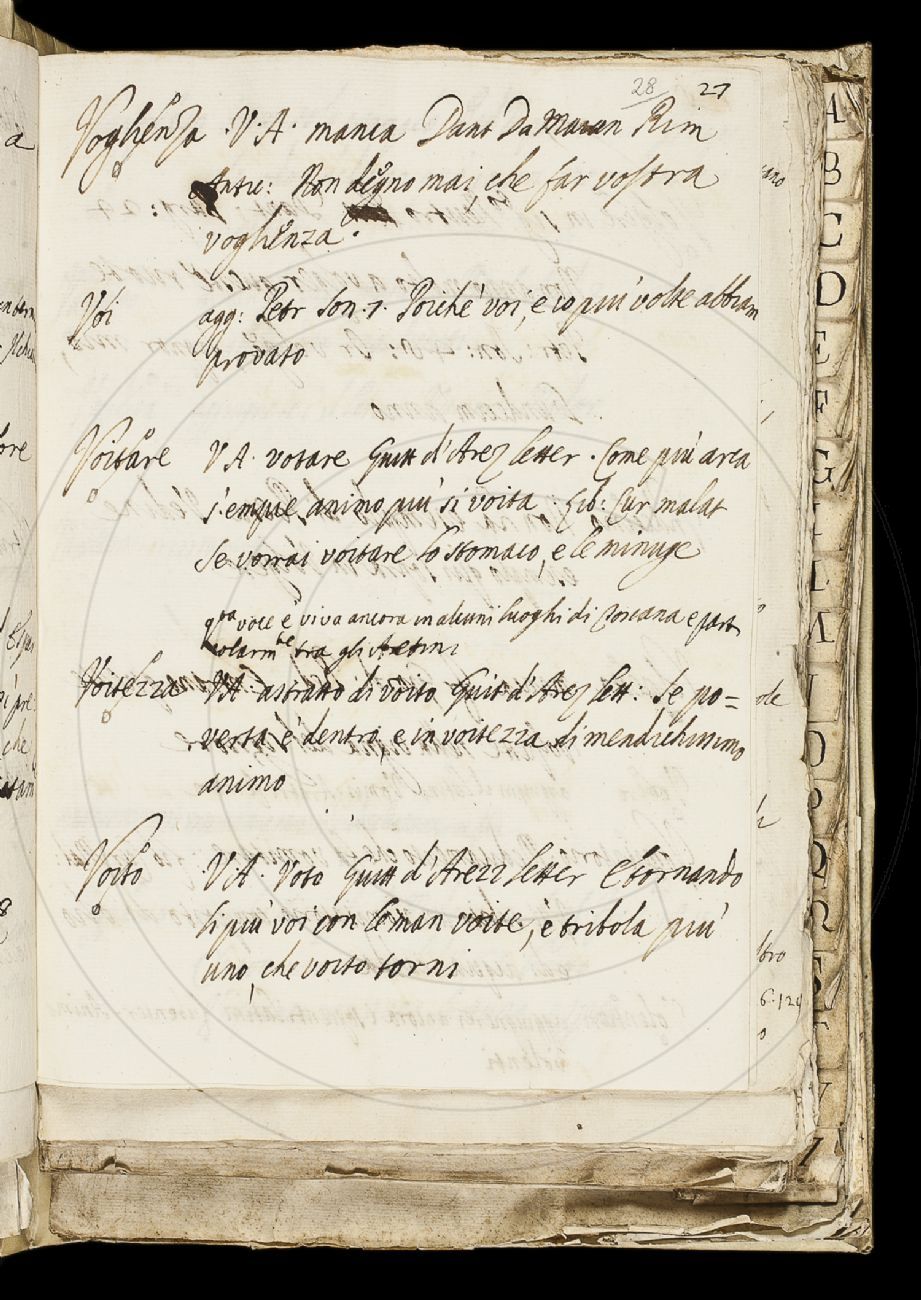 28 27
Voglienza V. A. manca Dant da Maian Rim
Antic: Non degno mai che far vostra
voglienza.
Voi agg: Petr Son. 1. Poiché voi, e io più volte abbiam
provato
Voitare V. A. votare Guitt d'Arez letter. Come più arca
s'empie, animo più si voita. Lib: Cur malat
Se vorrai voitare lo stomaco, e le minuge
qta voce è viva ancora in alcuni luoghi di Toscana e parti
colarmte tra gli Aretini
Voitezza V. A. astratto di voito Guitt d'Arez lett: Se po=
vertà è dentro, e in voitezza di mendichissimo
animo
Voito V. A. Voto Guitt d'Arezz letter E tornando
li più voi con le man voite, e tribola più
uno, che voito torni
A
B
C
D
E
F
G
L
M
O
P
Q
R
S
T
V
Z
ore
che
8
de
tro
6. 124